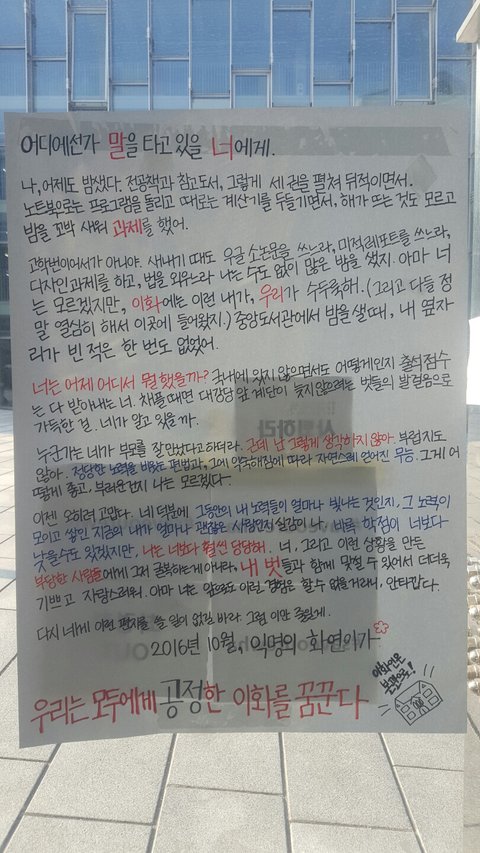 어디에선가 말을 타고 있을 너에게.
나, 어제도 밤샜다. 전공책과 참고도서, 그렇게 세 권을 펼쳐 뒤적이면서.
노트북으로는 프로그램을 돌리고 때로는 계산기를 두들기면서, 해가 뜨는 것도 모르고
밤을 꼬박 새워 과제를 했어.
고학번이어서가 아니야. 새내기 때도 우글 소논문을 쓰느라, 미적 레포트를 쓰느라,
디자인 과제를 하고, 법을 외우느라 나는 수도 없이 많은 밤을 샜지. 아마 너
는 모르겠지만, 이화에는 이런 내가, 우리가 수두룩해. (그리고 다들 정
말 열심히 해서 이곳에 들어왔지.) 중앙도서관에서 밤을 샐 때, 내 옆자
리가 빈 적은 한 번도 없었어.
너는 어제 어디서 뭘 했을까? 국내에 있지 않으면서도 어떻게인지 출석점수
는 다 받아내는 너. 채플 때면 대강당 앞 계단이 늦지 않으려는 벗들의 발걸음으로
가득한 걸, 네가 알고 있을까.
누군가는 네가 부모를 잘 만났다고 하더라. 근데 난 그렇게 생각하지 않아. 부럽지도
않아. 정당한 노력을 비웃는 편법과, 그에 익숙해짐에 따라 자연스레 얻어진 무능. 그게 어
떻게 좋고, 부러운건지 나는 모르겠다.
이젠 오히려 고맙다. 네 덕분에 그동안의 내 노력들이 얼마나 빛나는 것인지, 그 노력이
모이고 쌓인 지금의 내가 얼마나 괜찮은 사람인지 실감이 나. 비록 학점이 너보다
낮을수도 있겠지만, 나는 너보다 훨씬 당당해. 너, 그리고 이런 상황을 만든
부당한 사람들에게 그저 굴복하는게 아니라, 내 벗들과 함께 맞설 수 있어서 더더욱
기쁘고 자랑스러워. 아마 너는 앞으로도 이런 경험은 할 수 없을거라니, 안타깝다.
다시 네게 이런 편지를 쓸 일이 없길 바라. 그럼 이만 줄일게.
2016년 10월, 익명의 화연이가
이화인은
본관으로!
우리는 모두에게 공정한 이화를 꿈꾼다